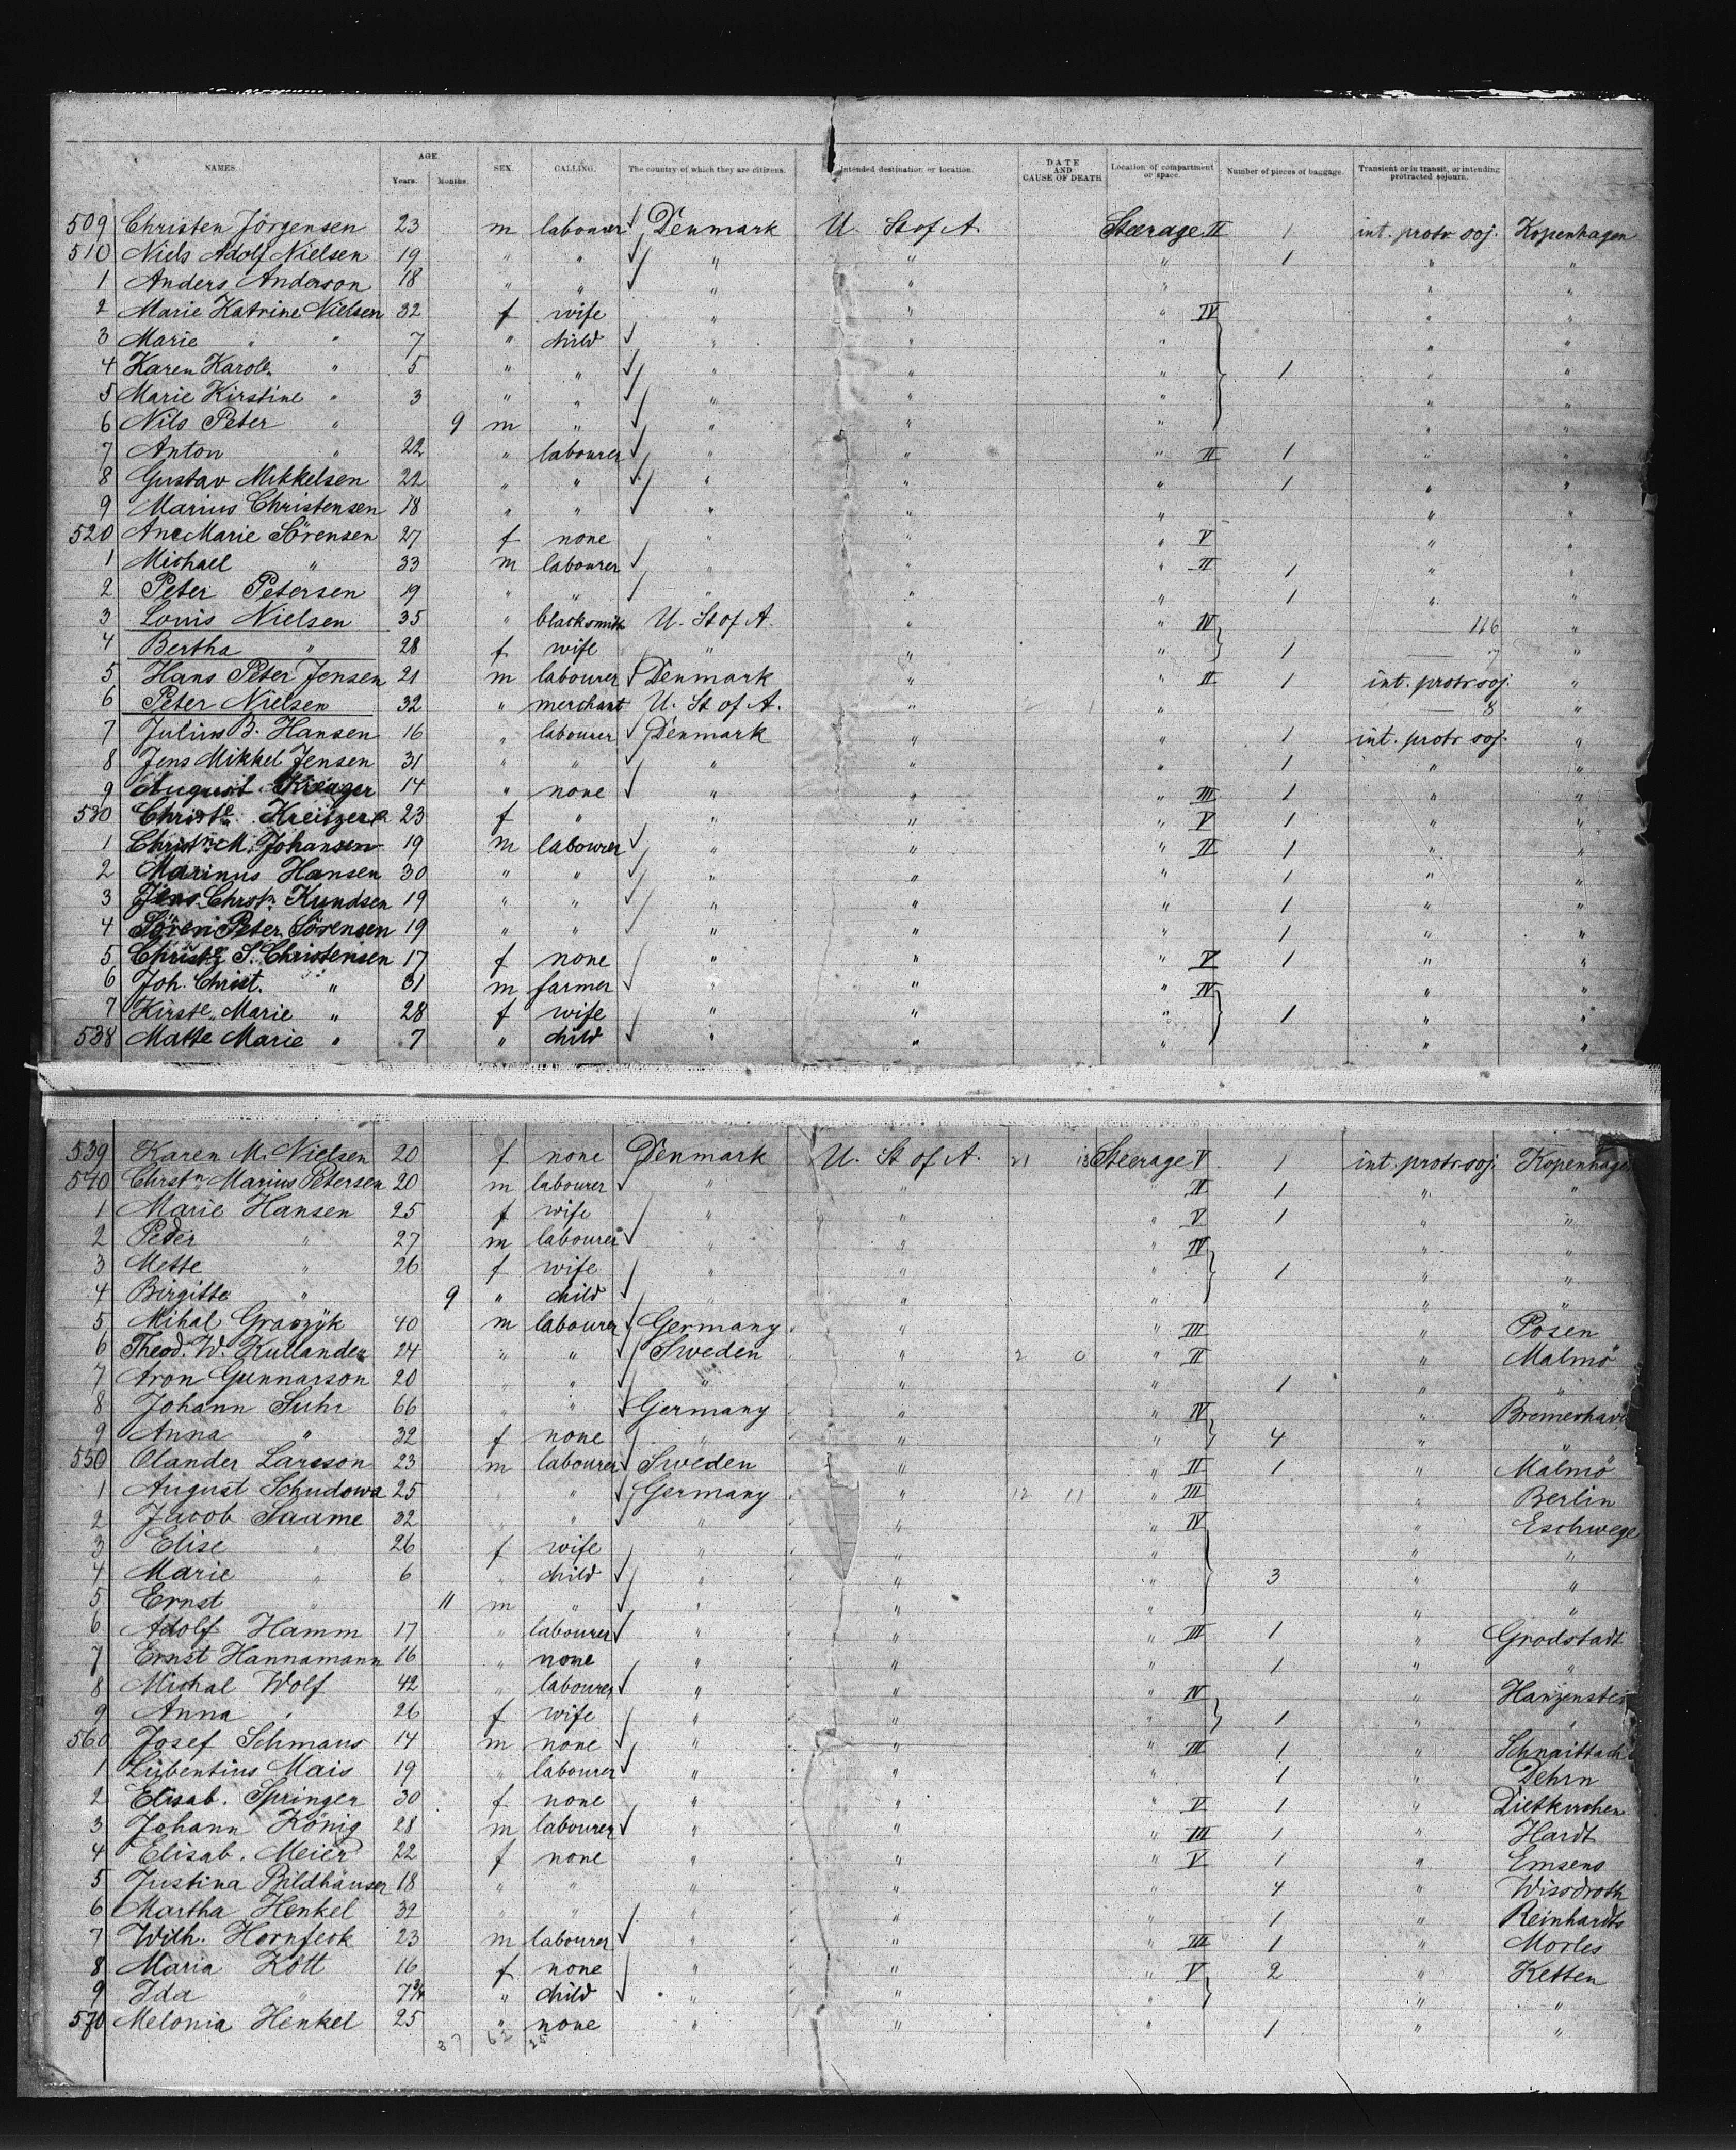 NAMES. AGE. SEX. CALLING. The country of which they are citizens. Intended destination or location. DATE AND CAUSE OF DEATH Location of compartment or space. Number of pieces of baggage. Transient or in transit, or intending protracted sojourn.
Years. Months.
509 Christen Jörgensen 23 m labourer Denmark U. St of A. Steerage II 1 int. protr. soj. Kopenhagen
510 Niels Adolf Nielsen 19 " " " " " 1 " "
1 Anders Anderson 18 " " " " " " "
2 Marie Katrine Nielsen 32 f wife " " " IV " "
3 Marie " 7 " child " " " " "
4 Karen Karole " 5 " " " " " 1 " "
5 Marie Kirstine " 3 " " " " " " "
6 Nils Peter " 9 m " " " " " "
7 Anton " 22 " labourer " " " II 1 " "
8 Gustav Mikkelsen 22 " " " " " 1 " "
9 Marius Christensen 18 " " " " " " "
520 Ane Marie Sörensen 27 f none " " " V " "
1 Michael " 33 m labourer " " " II 1 " "
2 Peter Petersen 19 " " " " " 1 " "
3 Louis Nielsen 35 " blacksmith U. St of A. " " IV 116 "
4 Bertha " 28 f wife " " " 1 7 "
5 Hans Peter Jensen 21 m labourer Denmark " " II 1 int. protr soj. "
6 Peter Nielsen 32 " merchant U. St of A. " " 8 "
7 Julius B. Hansen 16 " labourer Denmark " " 1 int. protr soj. "
8 Jens Mikkel Jensen 31 " " " " " 1 " "
9 August 14 " none " " " III 1 " "
530 Christe. 23 f " " " " V 1 " "
1 Christn M. Johansen 19 m labourer " " " II 1 " "
2 Marinus Hansen 30 " " " " " 1 " "
3 Jens Christn Kundsen 19 " " " " " 1 " "
4 Sören Peter Sörensen 19 " " " " " 1 " "
5 Christe S. Christensen 17 f none " " " V 1 " "
6 Joh. Christ. " 31 m farmer " " " IV " "
7 Kirste. Marie " 28 f wife " " " 1 " "
538 Matte Marie " 7 " child " " " " "
539 Karen M. Nielsen 20 f none Denmark U. St of A. 21 13 Steerage V 1 int. protr soj. Kopenhagen
540 Christn Marius Petersen 20 m labourer " " " II 1 " "
1 Marie Hansen 25 f wife " " " V 1 " "
2 Peder " 27 m labourer " " " IV " "
3 Mette " 26 f wife " " " 1 " "
4 Birgitte " 9 " child " " " " "
5 Mihal Graszÿk 40 m labourer Germany " " III " Posen
6 Theod. W. Kullander 24 " " Sweden " 2 0 " II " Malmö
7 Aron Gunnarson 20 " " " " " 1 " "
8 Johann Suhr 66 " " Germany " " IV " Bremerhave
9 Anna " 32 f none " " " 4 " "
550 Olander Larsson 23 m labourer Sweden " " II 1 " Malmö
1 August Schudowa 25 " " Germany " 12 11 " III " Berlin
2 Jacob Saame 32 " " " " " IV " Eschwege
3 Elise " 26 f wife " " " " "
4 Marie " 6 " child " " " 3 " "
5 Ernst " 11 m " " " " " "
6 Adolf Hamm 17 " labourer " " " III 1 " Grodstadt
7 Ernst Hannamann 16 " none " " " 1 " "
8 Michal Wolf 42 " labourer " " " IV "
9 Anna " 26 f wife " " " 1 " "
560 Josef Schmaus 14 m none " " " III 1 " Schnaittach
1 Lubentius Mais 19 " labourer " " " 1 " Dehrn
2 Elisab. Springer 30 f none " " " V 1 " Dietkirchen
3 Johann König 28 m labourer " " " III 1 " Hardt
4 Elisab. Meier 22 f none " " " V 1 " Emsens
5 Justina Bildhäuser 18 " " " " " 4 " Wissdroth
6 Martha Henkel 32 " " " " " 1 " Reinhardts
7 Wilh. Hornfeck 23 m labourer " " " III 1 " Morles
8 Maria Kött 16 f none " " " V 2 " Ketten
9 Ida " 7 3/4 " child " " " " "
570 Melonia Henkel 25 " none " " " 1 " "
37 62